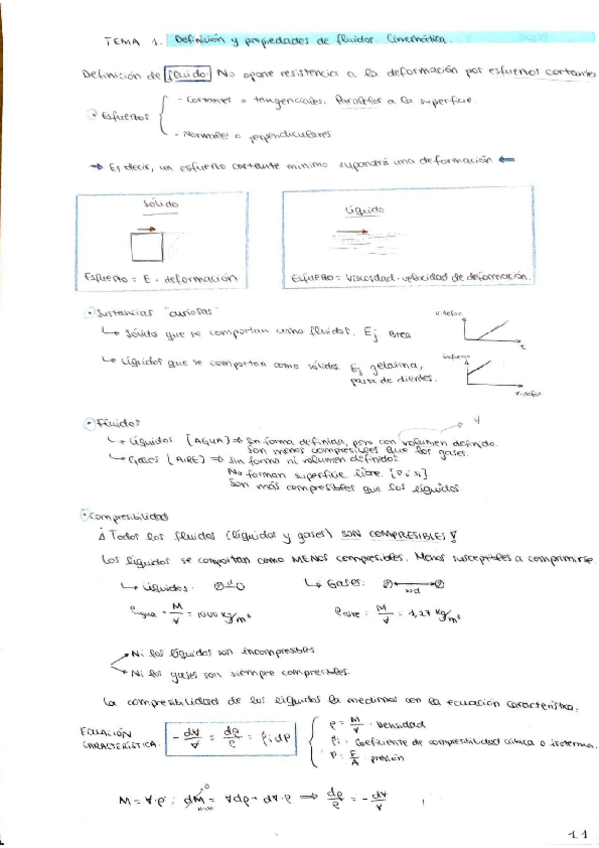 TEMA 1. Definición y propiedades de fluidos. Cinemática.
Definición de fluido: No opone resistencia a la deformación por esfuerzos cortantes
· Esfuerzos
- Cortantes o tangenciales. Paralelos a la superficie.
- Normales o perpendiculares
→ Es decir, un esfuerzo cortante mínimo supondrá una deformación ←
Sólido
Líquido
Esfuerzo = E · deformación
Esfuerzo = Viscosidad · velocidad de deformación.
· Sustancias "curiosas"
v. defor
↳ Sólidos que se comportan como fluidos. Ej Brea
↳ Líquidos que se comportan como sólidos. Ej gelatina,
pasta de dientes.
esfuerzo
v. defor
· Fluidos
↳ Líquidos [AGUA] ⇒ Sin forma definida, pero con volumen definido.
Son menos compresibles que los gases.
↳ Gases [AIRE] ⇒ Sin forma ni volumen definidos
No forman superficie libre.
Son más compresibles que los líquidos
· Compresibilidad
¡Todos los fluidos (líquidos y gases) SON COMPRESIBLES!
Los líquidos se comportan como MENOS compresibles. Menos susceptibles a comprimirse.
↳ Líquidos: d
↳ Gases:
ρagua = M/V = 1000 kg/m³
ρaire = M/V = 1,27 kg/m³
Ni los líquidos son incompresibles
Ni los gases son siempre compresibles.
La compresibilidad de los líquidos la medimos con la ecuación característica.
ECUACIÓN CARACTERÍSTICA.
-dV/V = dρ/ρ = βi dp
ρ = M/V · Densidad
βi · Coeficiente de compresibilidad cúbica o isoterma.
P = F/A · presión
M = V·ρ ; dM = Vdρ + dV·ρ ⇒ dρ/ρ = -dV/V
1.1